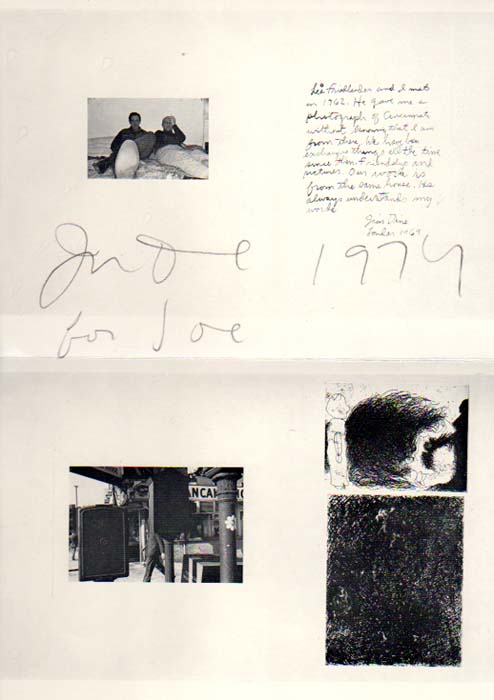 Lee Friedlander and I met
in 1962. He gave me a
photograph of Cincinnati
without knowing that I am
from there. We have been
exchanging things clothes, time
since then. Friendship and
pictures. Our work is
from the same house. He
always understands my
work
Jim Dine
London 1969
Jim Dine 1974
for Joe
ANCA